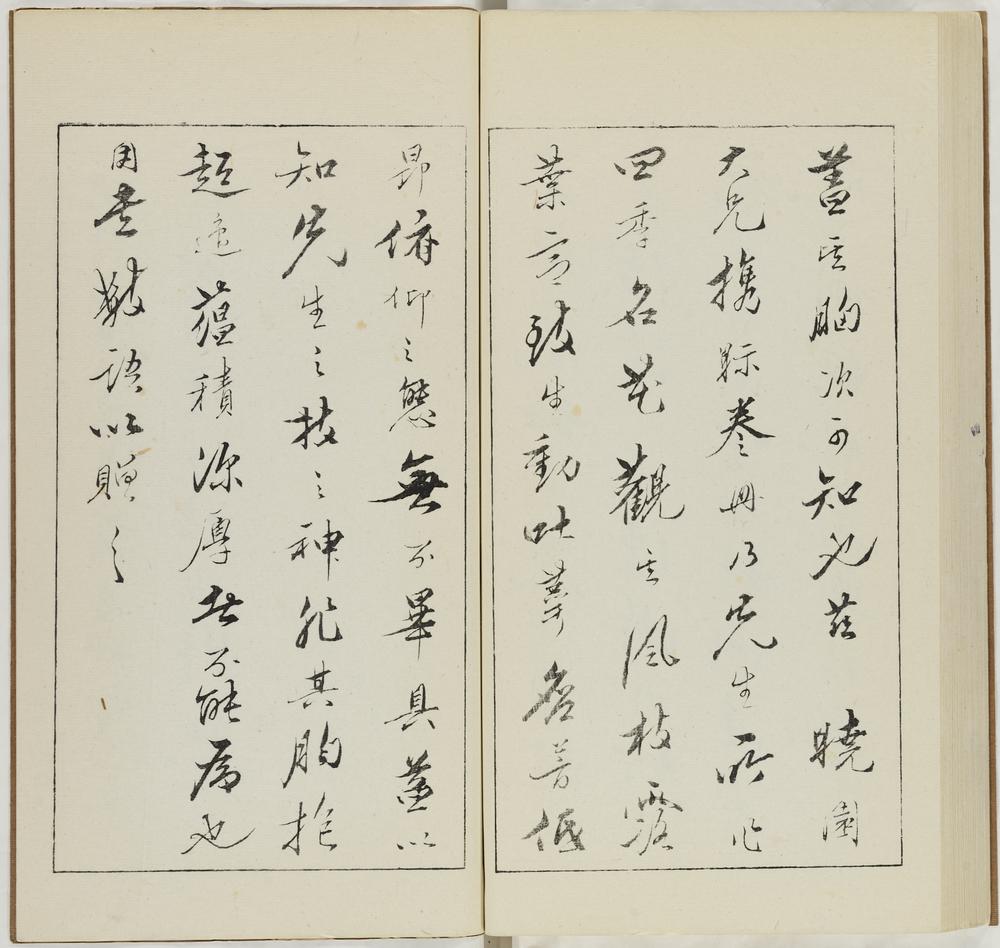 蓋其胸次可知也茲 曉園
大兄攜眎卷冊乃先生所作
四季名花觀其風枝露
葉意致生動吐萼含芳低
昂俯仰之態無不畢具益以
知先生之技之神非其胸抱
超逸蘊積深厚者不能爲也
因書數語以贈之